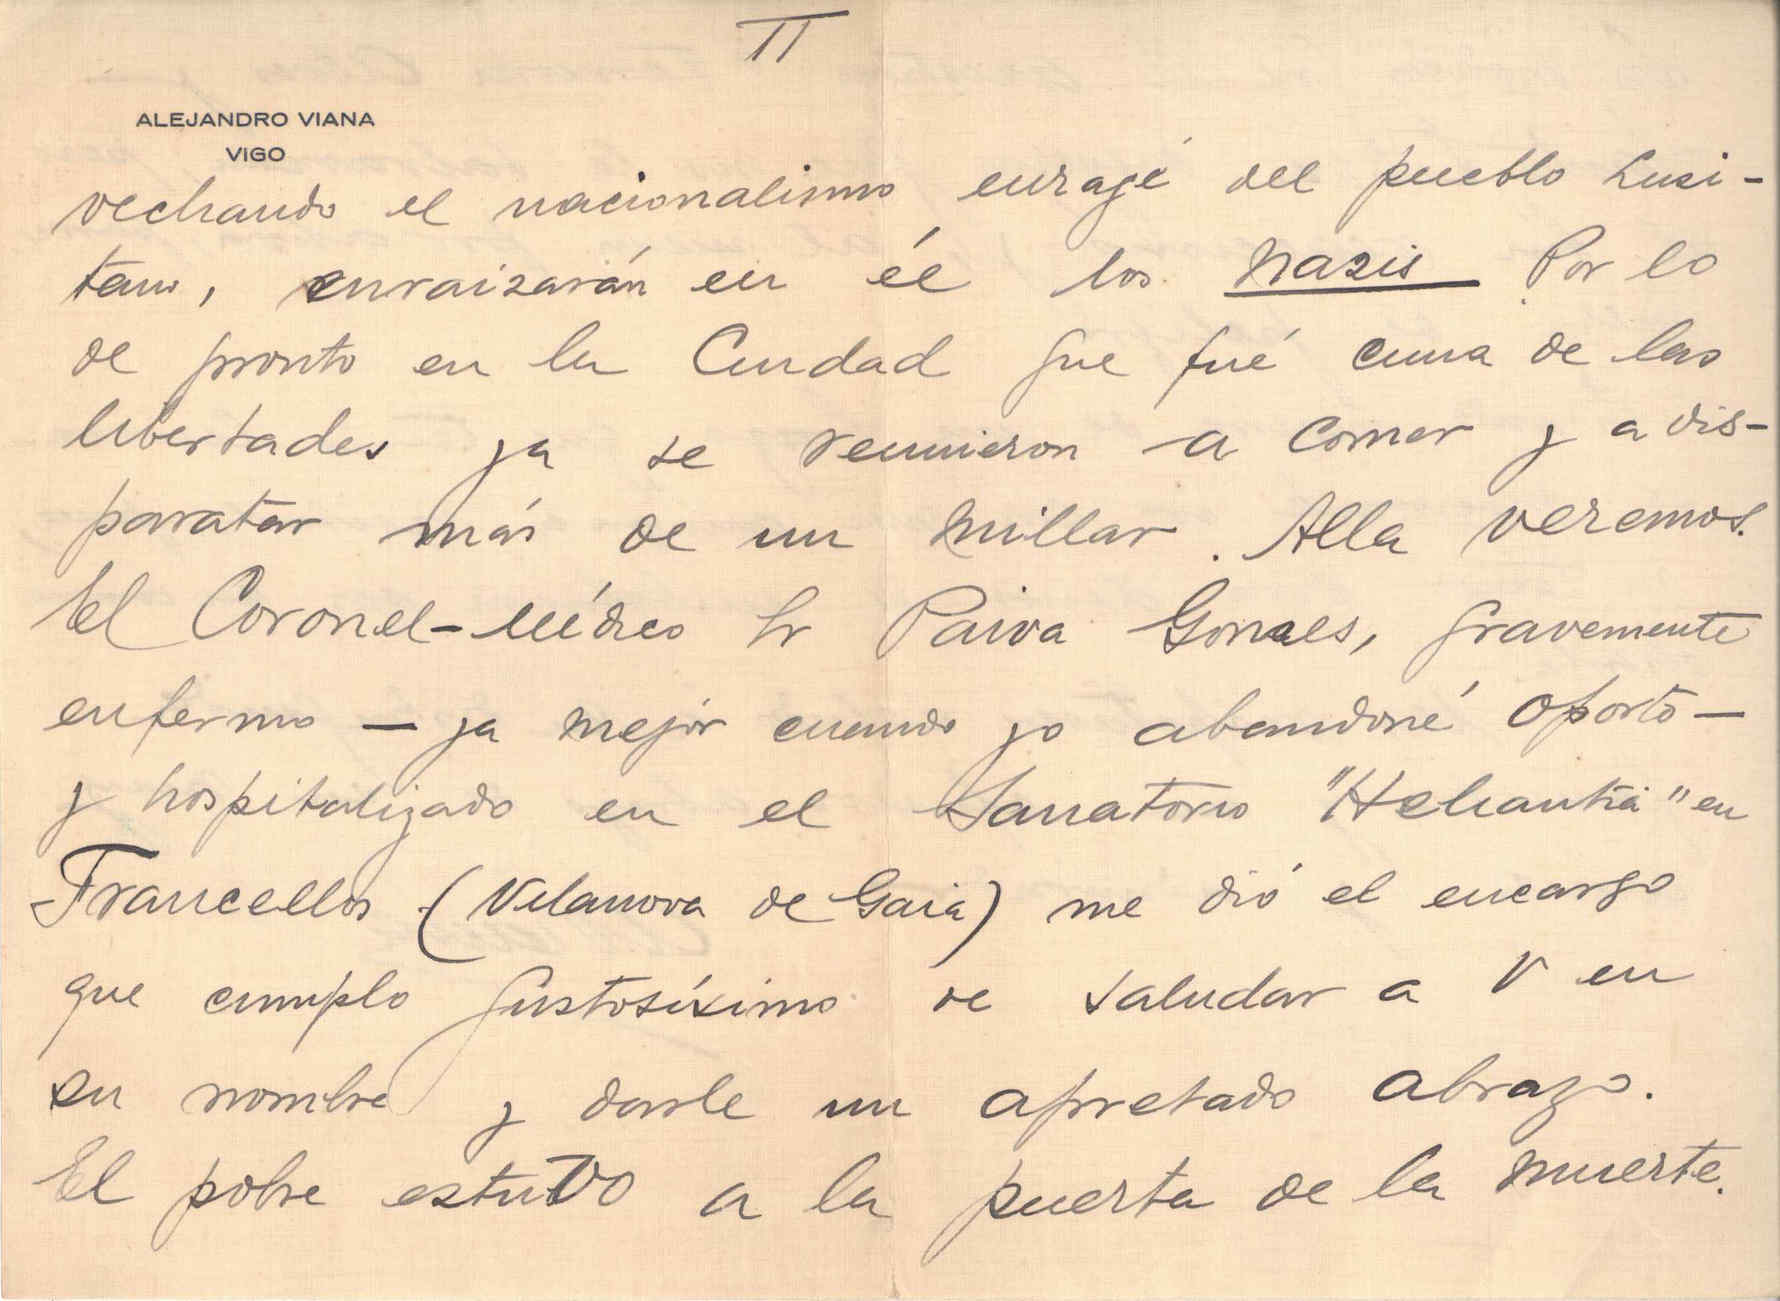 II
ALEJANDRO VIANA
VIGO
vechando el nacionalismo enragé del pueblo Lusi-
tano, enraizarán en él los Nazis Por lo
de pronto en la Ciudad que fué cuna de las
libertades ya se reunieron a comer y a dis-
paratar más de un millar. Alla veremos.
El Coronel-Médico Sr Paiva Gomes, gravemente
enfermo — ya mejor cuando yo abandoné Oporto —
y hospitalizado en el Sanatorio "Heliantia" en
Francellos (Vilanova de Gaia) me dió el encargo
que cumplo gustosísimo de saludar a V en
su nombre y darle un apretado abrazo.
El pobre estuvo a la puerta de la muerte.